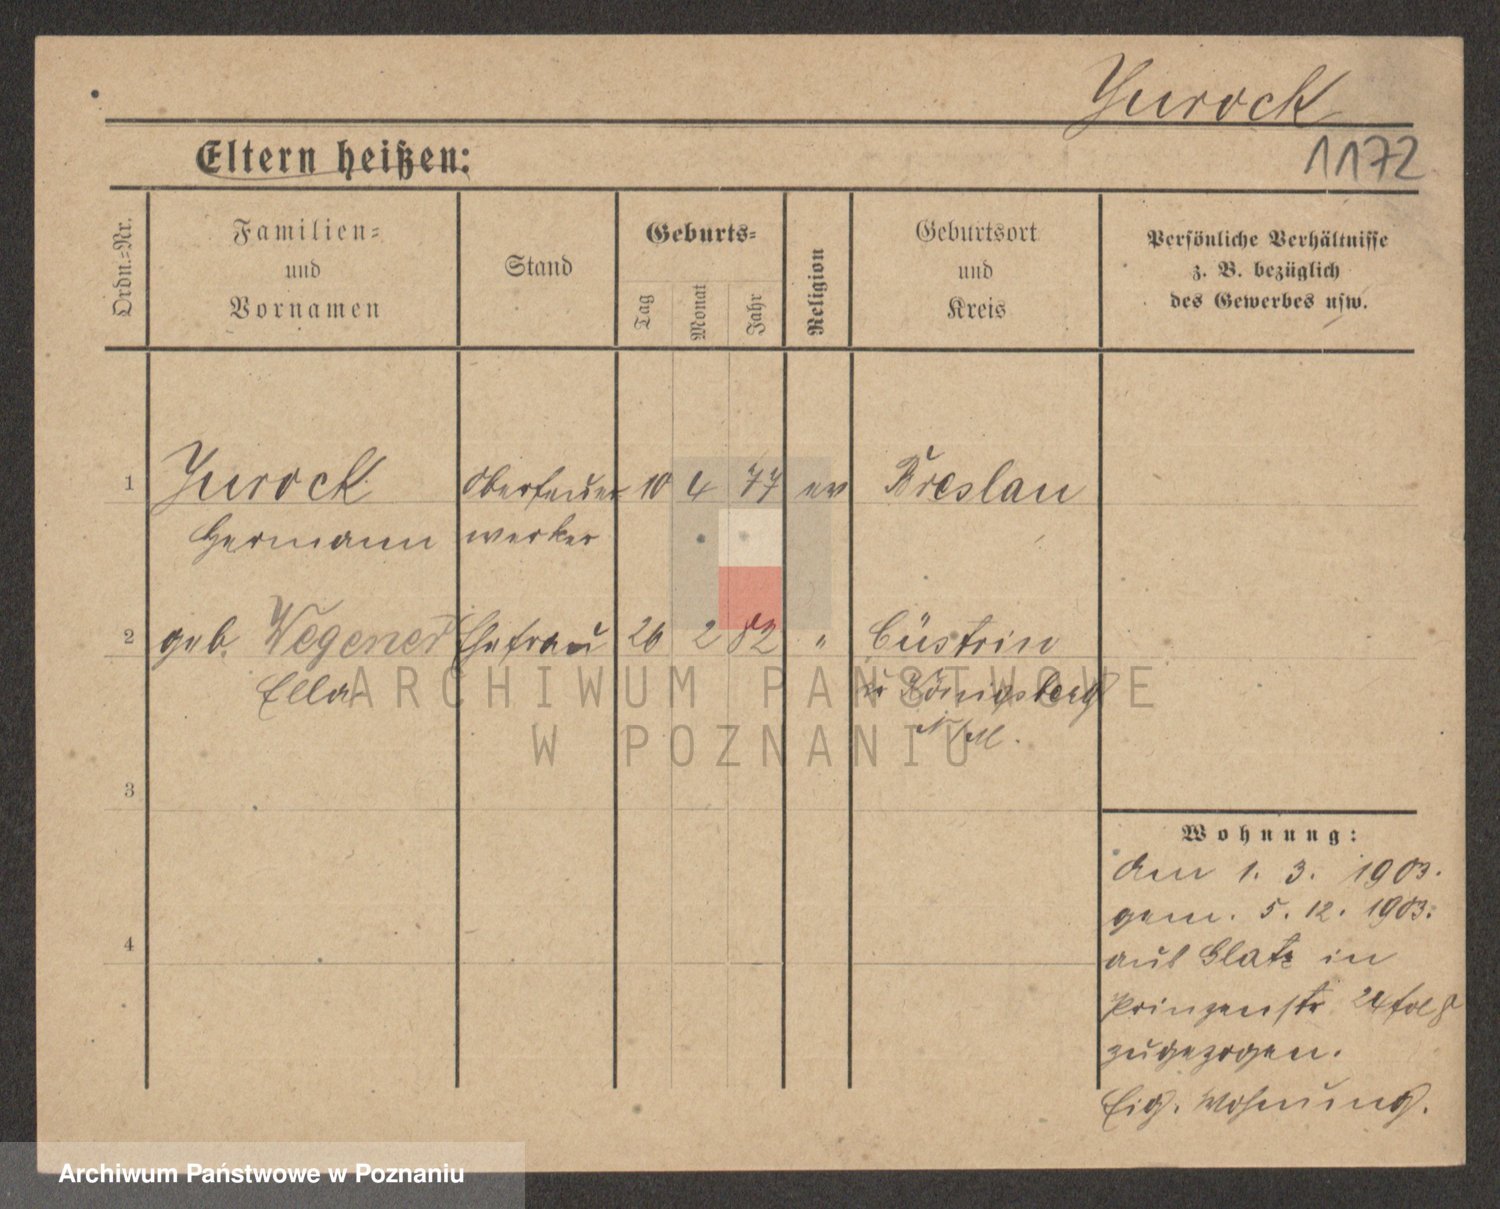 Yurock
1172
Eltern heißen:
Ordn.=Nr.
Familien=
und
Vornamen
Stand
Geburts=
Tag
Monat
Jahr
Religion
Geburtsort
und
Kreis
Persönliche Verhältnisse
z. B. bezüglich
des Gewerbes usw.
1 Yurock Oberfeuer 10 4 77 ev Breslau
Hermann werker
2 geb. Wegener Ehefrau 26 2 82 " Cüstrin
Ella Kr Königsberg
N/M.
3
4
Wohnung:
den 1. 3. 1903.
gem. 5. 12. 1903.
aus Glatz in
Prinzenstr 24
zugezogen.
Eig. Wohnung.
ARCHIWUM PAŃSTWOWE
W POZNANIU
Archiwum Państwowe w Poznaniu